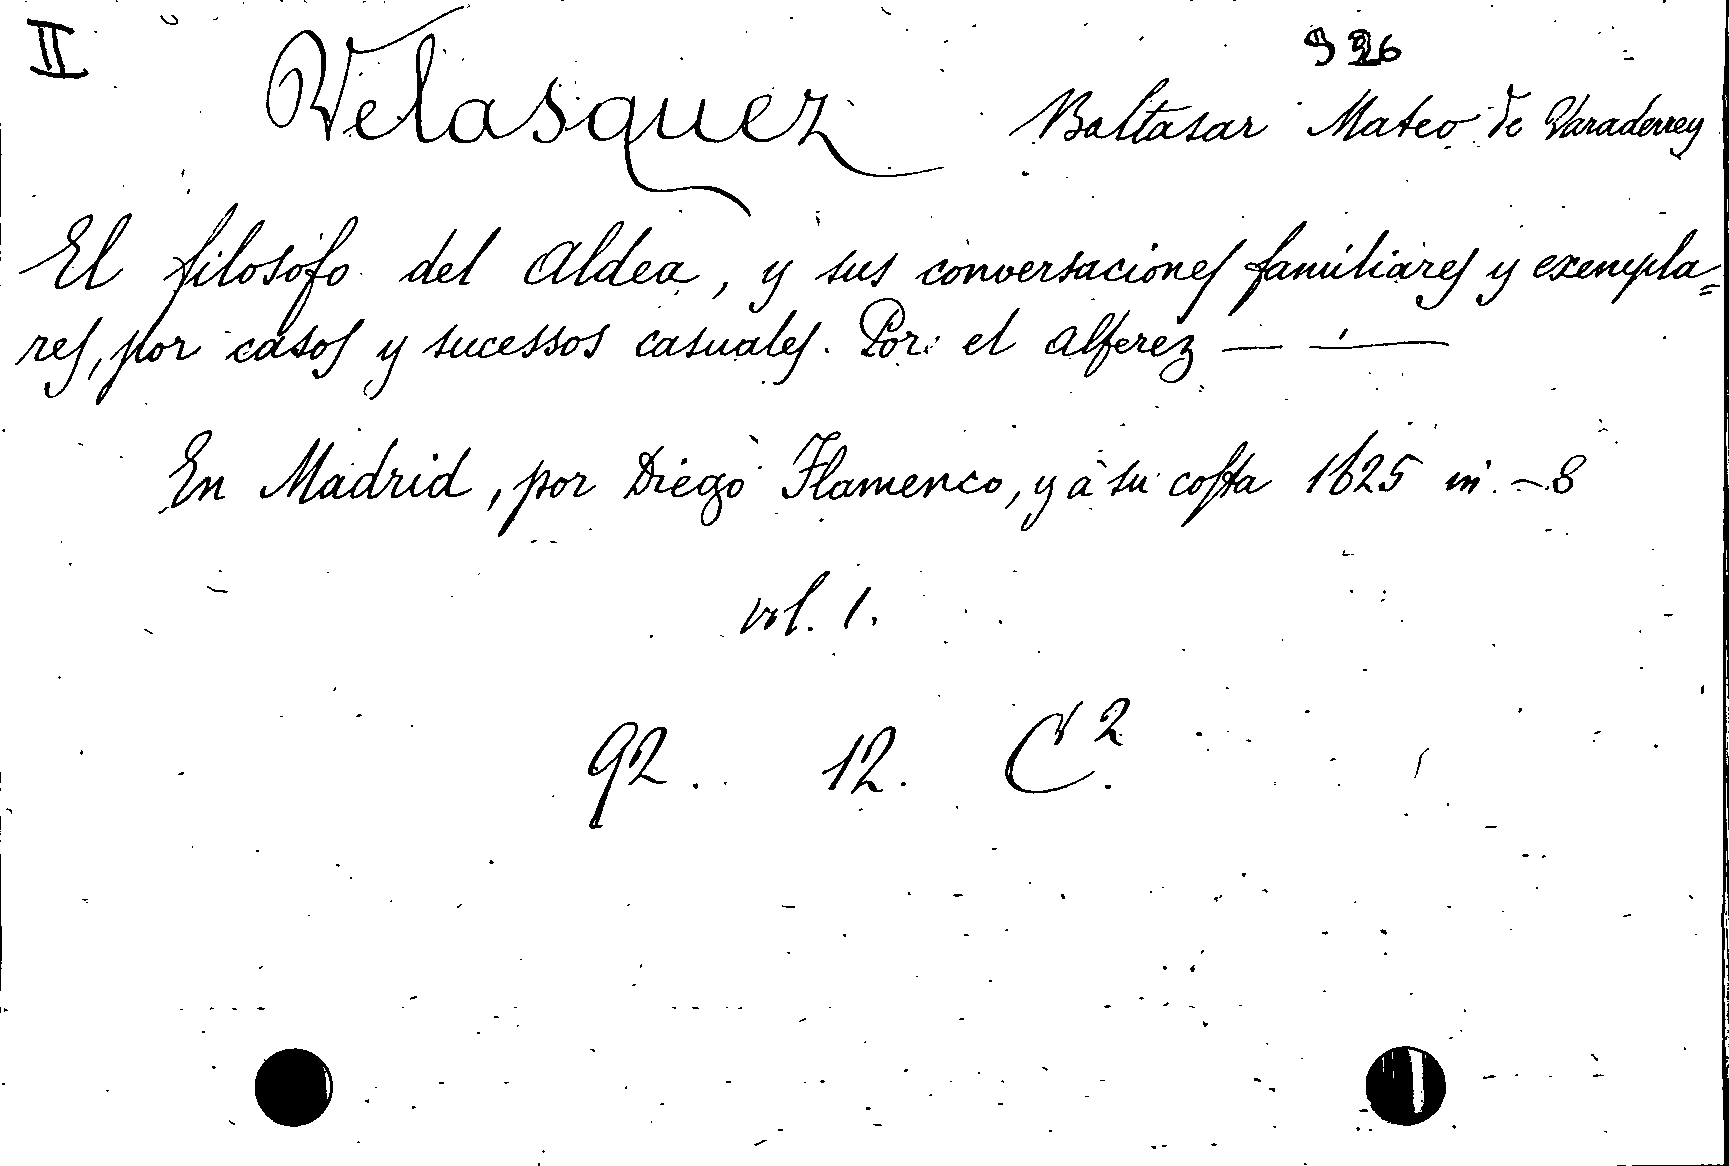 II
926
Velasquez Baltasar Mateo de Varaderrey
El filosofo del Aldea, y sus conversaciones familiares y exempla=
res, por casos y sucessos casuales. Por el alferez — —
En Madrid, por Diego Flamenco, y à su costa 1625 in -8
vol. 1.
92. 12. C 2.